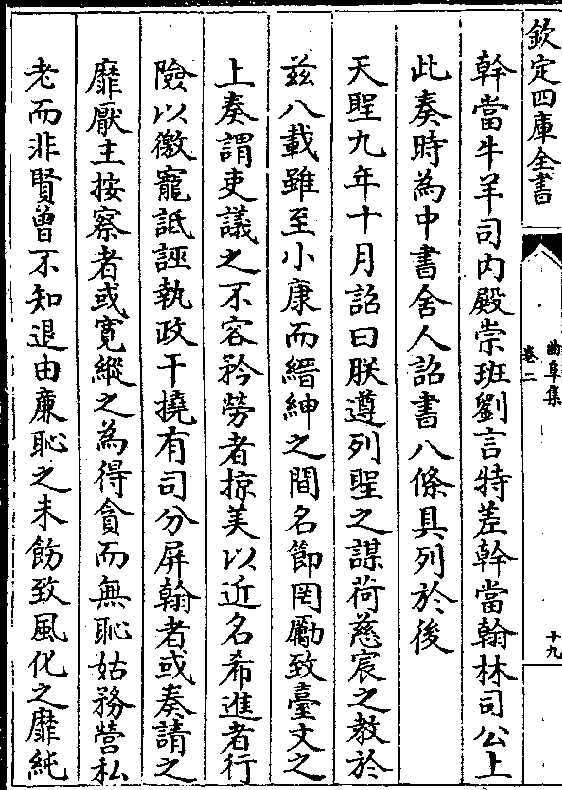 欽定四庫全書
曲阜集
卷二
十九
幹當牛羊司內殿崇班劉言特差幹當翰林司公上
此奏時為中書舍人詔書八條具列於後
天聖九年十月詔曰朕遵列聖之謀荷慈宸之教於
兹八載雖至小康而縉紳之間名節罔勵致臺文之
上奏謂吏議之不容矜勞者掠美以近名希進者行
險以徼寵詆誣執政干撓有司分屏翰者或奏請之
靡厭主按察者或寛縱之為得貪而無恥姑務營私
老而非賢曾不知退由廉恥之未飭致風化之靡純